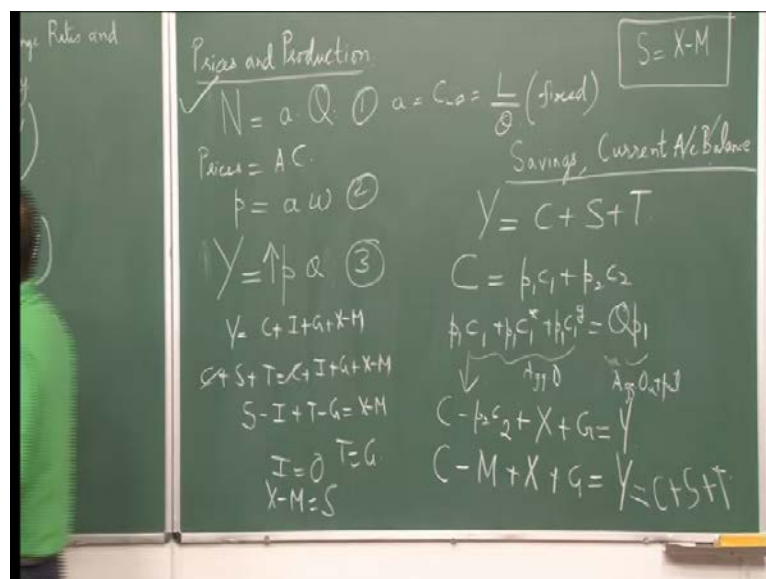 Rates and
Prices and Production
N = a. Q. ① a = C-φ = L/Q (fixed)
Prices = AC.
p = a w ②
Y = ↑p Q ③
Y = C + I + G + X-M
C + S + T = C + I + G + X-M
S - I + T - G = X-M
I = 0 T = G
X-M = S
S = X-M
Savings, Current A/c Balance
Y = C + S + T
C = p₁c₁ + p₂c₂
p₁c₁ + p₁c₁* + p₁c₁ᵍ = Qp₁
Agg D Agg Output
C - p₂c₂ + X + G = Y
C - M + X + G = Y = C + S + T